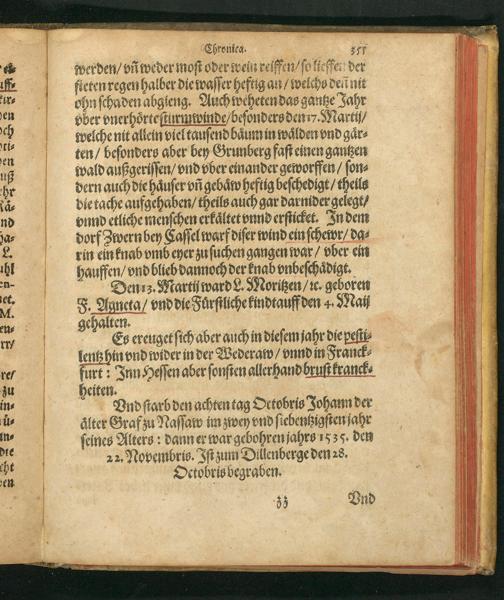 Chronica. 351
werden/ vñ weder most oder wein reiffen/ so lieffen der
steten regen halber die wasser heftig an/ welchs deñ nit
ohn schaden abgieng. Auch weheten das gantze Jahr
vber vnerhörte sturmwinde/ besonders den 17. Martij/
welche nit allein viel tausend bäum in wälden vnd gär-
ten/ besonders aber bey Grunberg fast einen gantzen
wald außgerissen/ vnd vber einander geworffen/ son-
dern auch die häuser vñ gebäw heftig beschedigt/ theils
die tache aufgehaben/ theils auch gar darnider gelegt/
vnnd etliche menschen erkältet vnnd ersticket. In dem
dorf Zwern bey Cassel warf diser wind ein schewr/ da-
rin ein knab vmb eyer zu suchen gangen war/ vber ein
hauffen/ vnd blieb dannoch der knab vnbeschädigt.
Den 13. Martij ward L. Moritzen/ ꝛc. geboren
F. Agneta/ vnd die Fürstliche kindtauff den 4. Maij
gehalten.
Es ereuget sich aber auch in diesem jahr die pesti-
lentz hin vnd wider in der Wederaw/ vnnd in Franck-
furt: Inn Hessen aber sonsten allerhand brust kranck-
heiten.
Vnd starb den achten tag Octobris Johann der
älter Graf zu Nassaw im zwey vnd siebentzigsten jahr
seines Alters: dann er war gebohren jahrs 1535. den
22. Novembris. Ist zum Dillenberge den 28.
Octobris begraben.
zz Vnd